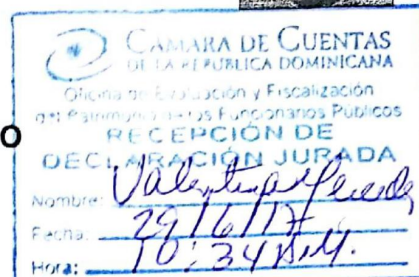 CÁMARA DE CUENTAS
DE LA REPÚBLICA DOMINICANA
Oficina de Evaluación y Fiscalización
del Patrimonio de los Funcionarios Públicos
O
RECEPCIÓN DE
DECLARACIÓN JURADA
Nombre: Valentina
Fecha: 29/6/17
Hora: 10:34 A.M.